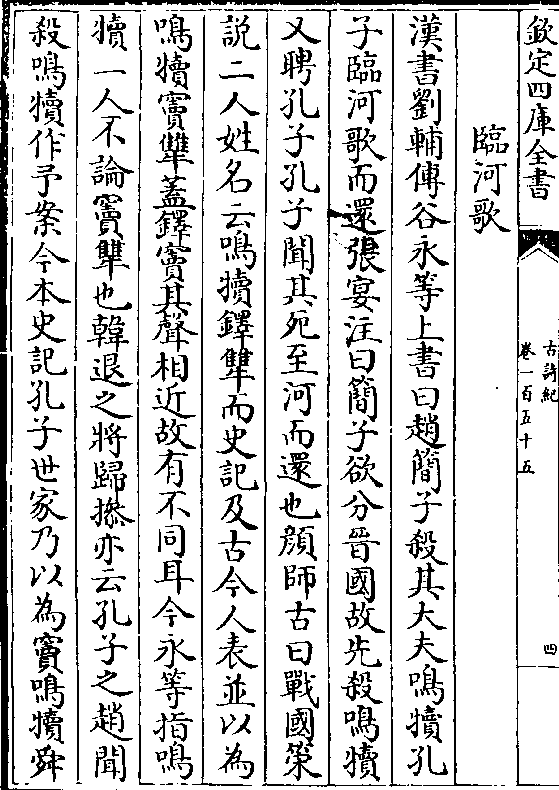 欽定四庫全書
古詩紀
卷一百五十五
四
臨河歌
漢書劉輔傳谷永等上書曰趙簡子殺其大夫鳴犢孔
子臨河歌而還張宴注曰簡子欲分晉國故先殺鳴犢
又聘孔子孔子聞其死至河而還也顔師古曰戰國策
説二人姓名云鳴犢鐸犨而史記及古今人表並以為
鳴犢竇犨蓋鐸竇其聲相近故有不同耳今永等指鳴
犢一人不論竇犨也韓退之將歸操亦云孔子之趙聞
殺鳴犢作予案今本史記孔子世家乃以為竇鳴犢舜